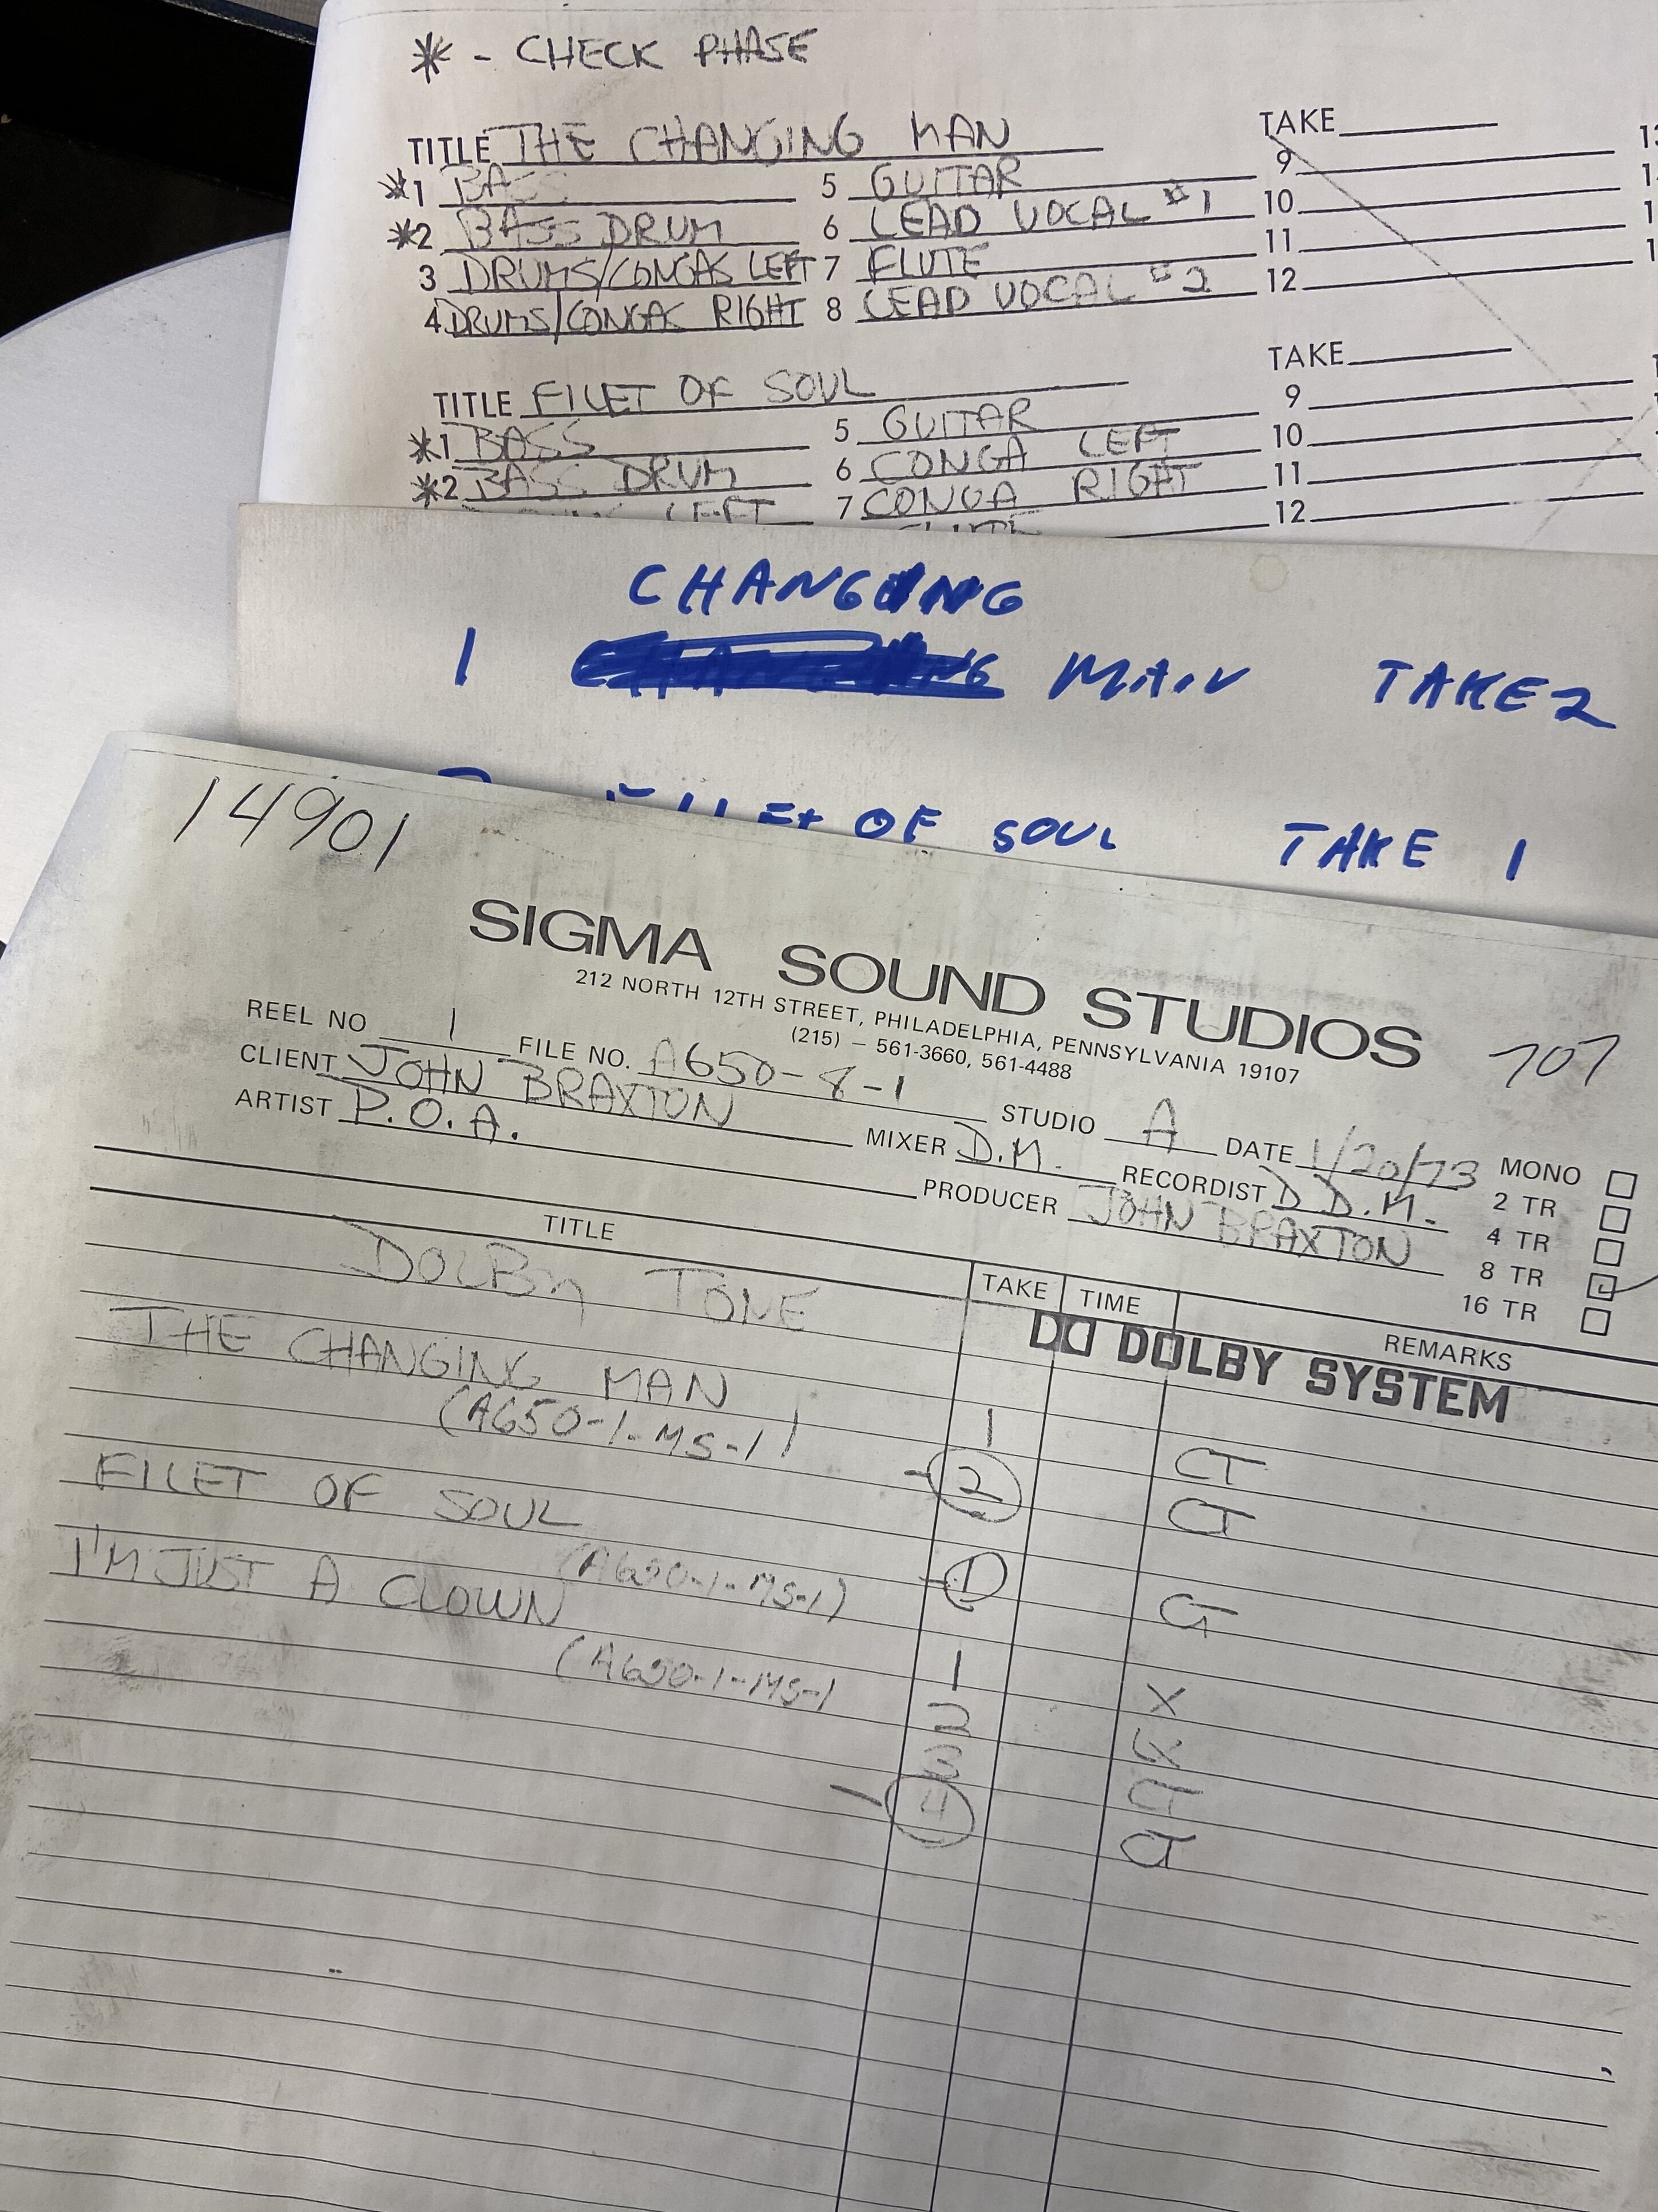 * - CHECK PHASE
TITLE THE CHANGING MAN TAKE
*1 BASS 5 GUITAR 9
*2 BASS DRUM 6 LEAD VOCAL #1 10
3 DRUMS/CONGAS LEFT 7 FLUTE 11
4 DRUMS/CONGAS RIGHT 8 LEAD VOCAL #2 12
TITLE FILET OF SOUL TAKE
*1 BASS 5 GUITAR 9
*2 BASS DRUM 6 CONGA LEFT 10
LEFT 7 CONGA RIGHT 11
FLUTE 12
CHANGING
1 MAN TAKE 2
FILET OF SOUL TAKE 1
14901
SIGMA SOUND STUDIOS
212 NORTH 12TH STREET, PHILADELPHIA, PENNSYLVANIA 19107
(215) – 561-3660, 561-4488
707
REEL NO 1 FILE NO. A650-8-1 STUDIO A DATE 1/20/73 MONO
CLIENT JOHN BRAXTON MIXER D.M. RECORDIST D.D.M. 2 TR
ARTIST P.O.A. PRODUCER JOHN BRAXTON 4 TR
8 TR
16 TR
TITLE TAKE TIME REMARKS
DOLBY TONE DOLBY SYSTEM
THE CHANGING MAN 1 CT
(A650-1-MS-1) 2 CT
FILET OF SOUL 1 CT
(A650-1-MS-1)
I'M JUST A CLOWN 1 X
(A650-1-MS-1 2
3 CT
4 CT